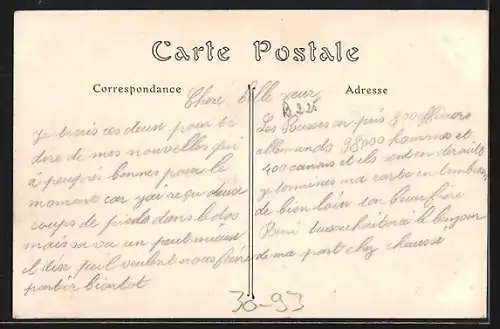 Carte Postale
Correspondance
Adresse
Chère Belle sœur
B 225
Je t'ecris ces deux pour te
dire de mes nouvelles qui
à peuprès bonnes pour le
moment car j'ai reçu deux
coups de pieds dans le dos
mais sa va un peut mieux
il dise qu'il veulent nous faire
partir bientot
Les Russes on pris 300 officiers
allemands 38000 hommes et
400 canons et ils sont en
je termines ma carte en
de bien loin ton Beau frère
René tu souhaiterai le bonjour
de ma part chez
30-93